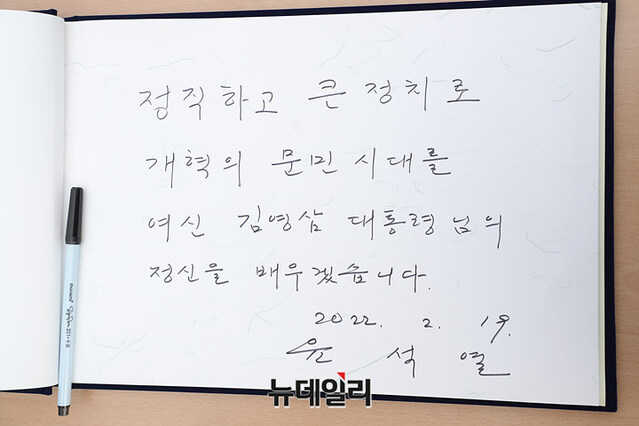 정직하고 큰 정치로
개혁의 문민시대를
여신 김영삼 대통령님의
정신을 배우겠습니다.
2022. 2. 19.
윤 석 열
뉴데일리